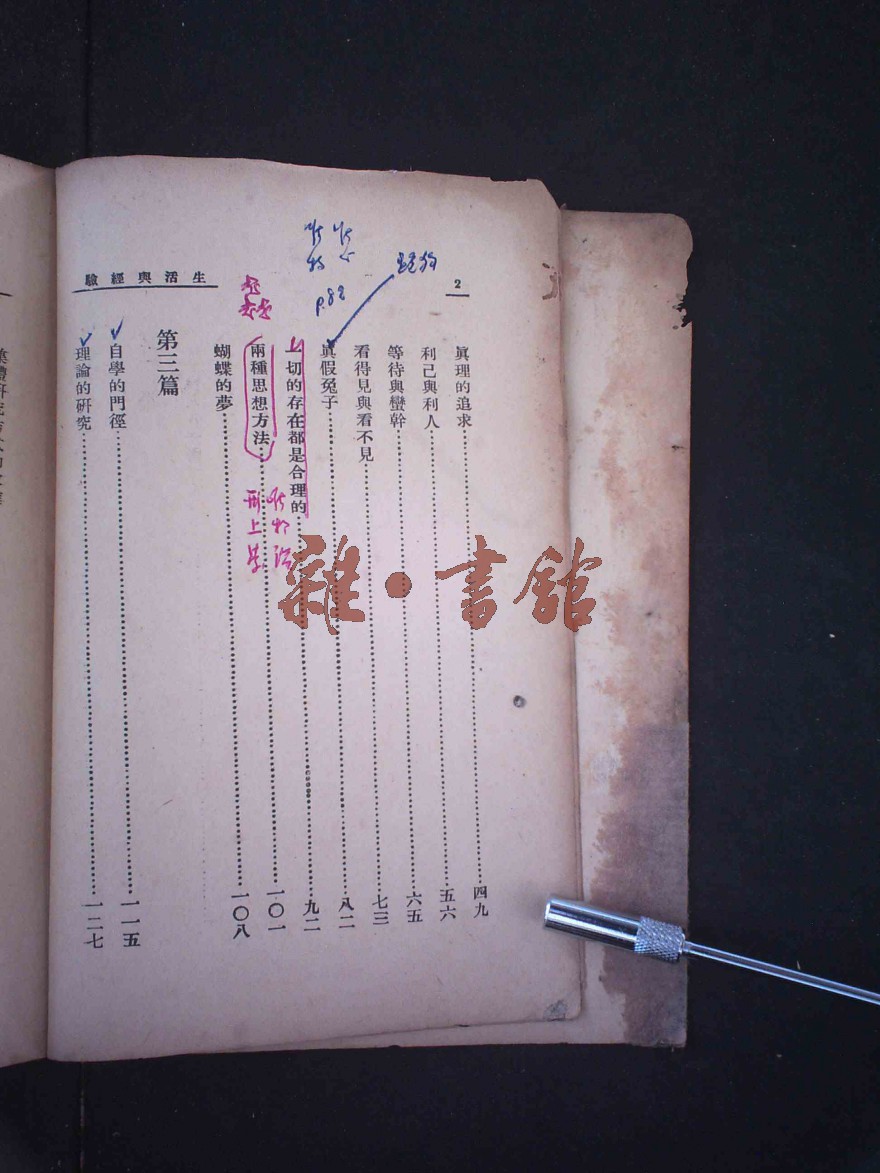 2
生活與經驗
眞理的追求……四九
利己與利人……五六
等待與蠻幹……六五
看得見與看不見……七三
眞假兔子……八二
一切的存在都是合理的……九二
兩種思想方法……一〇一
蝴蝶的夢……一〇八
第三篇
自學的門徑……一一五
理論的研究……一二七
P.82
形上學
雜·書館